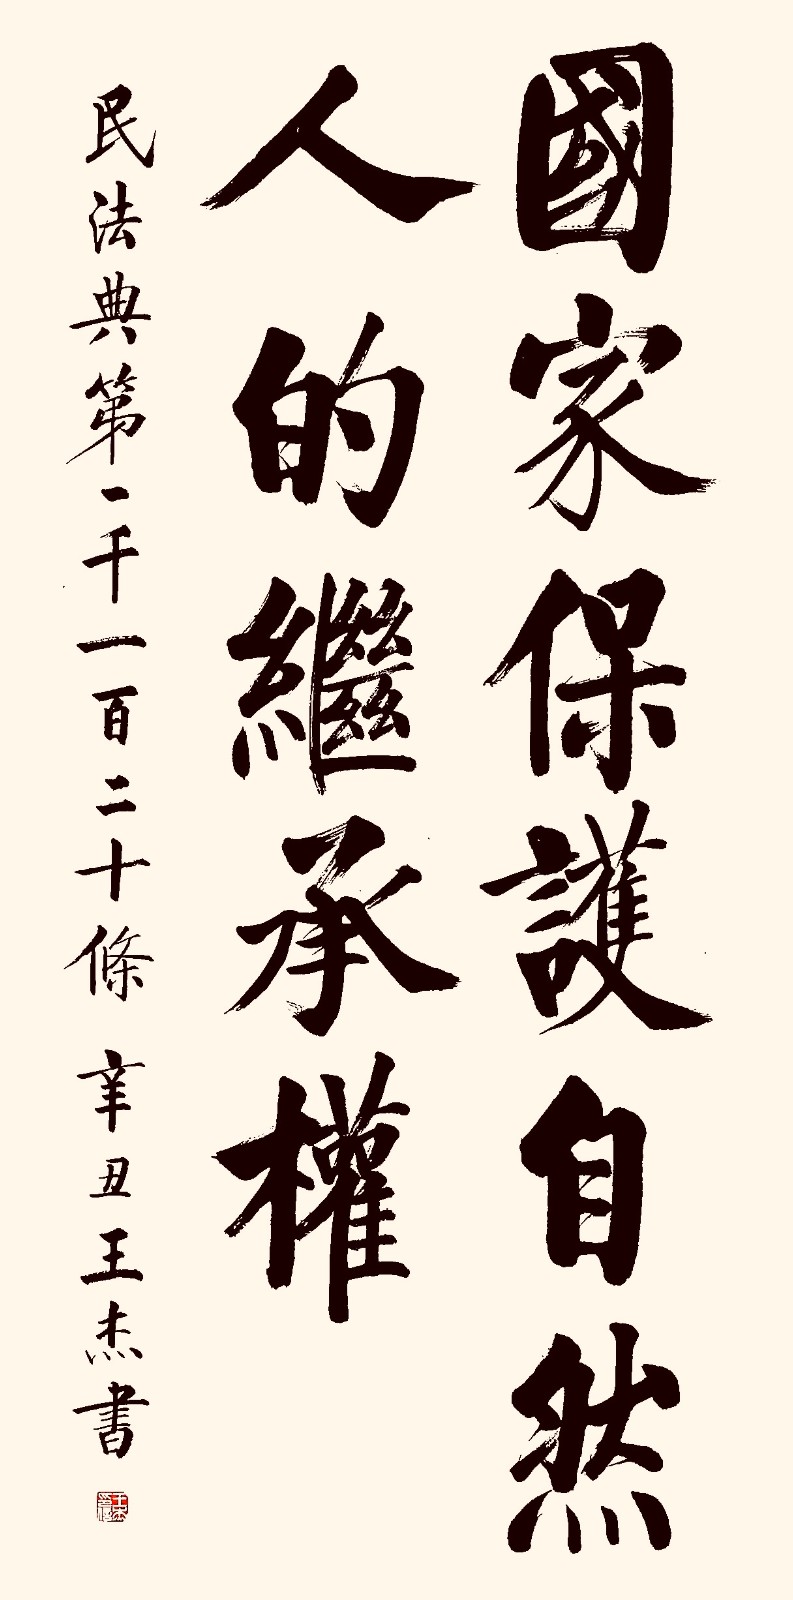 國家保護自然
人的繼承權
民法典第一千一百二十條 辛丑王杰書